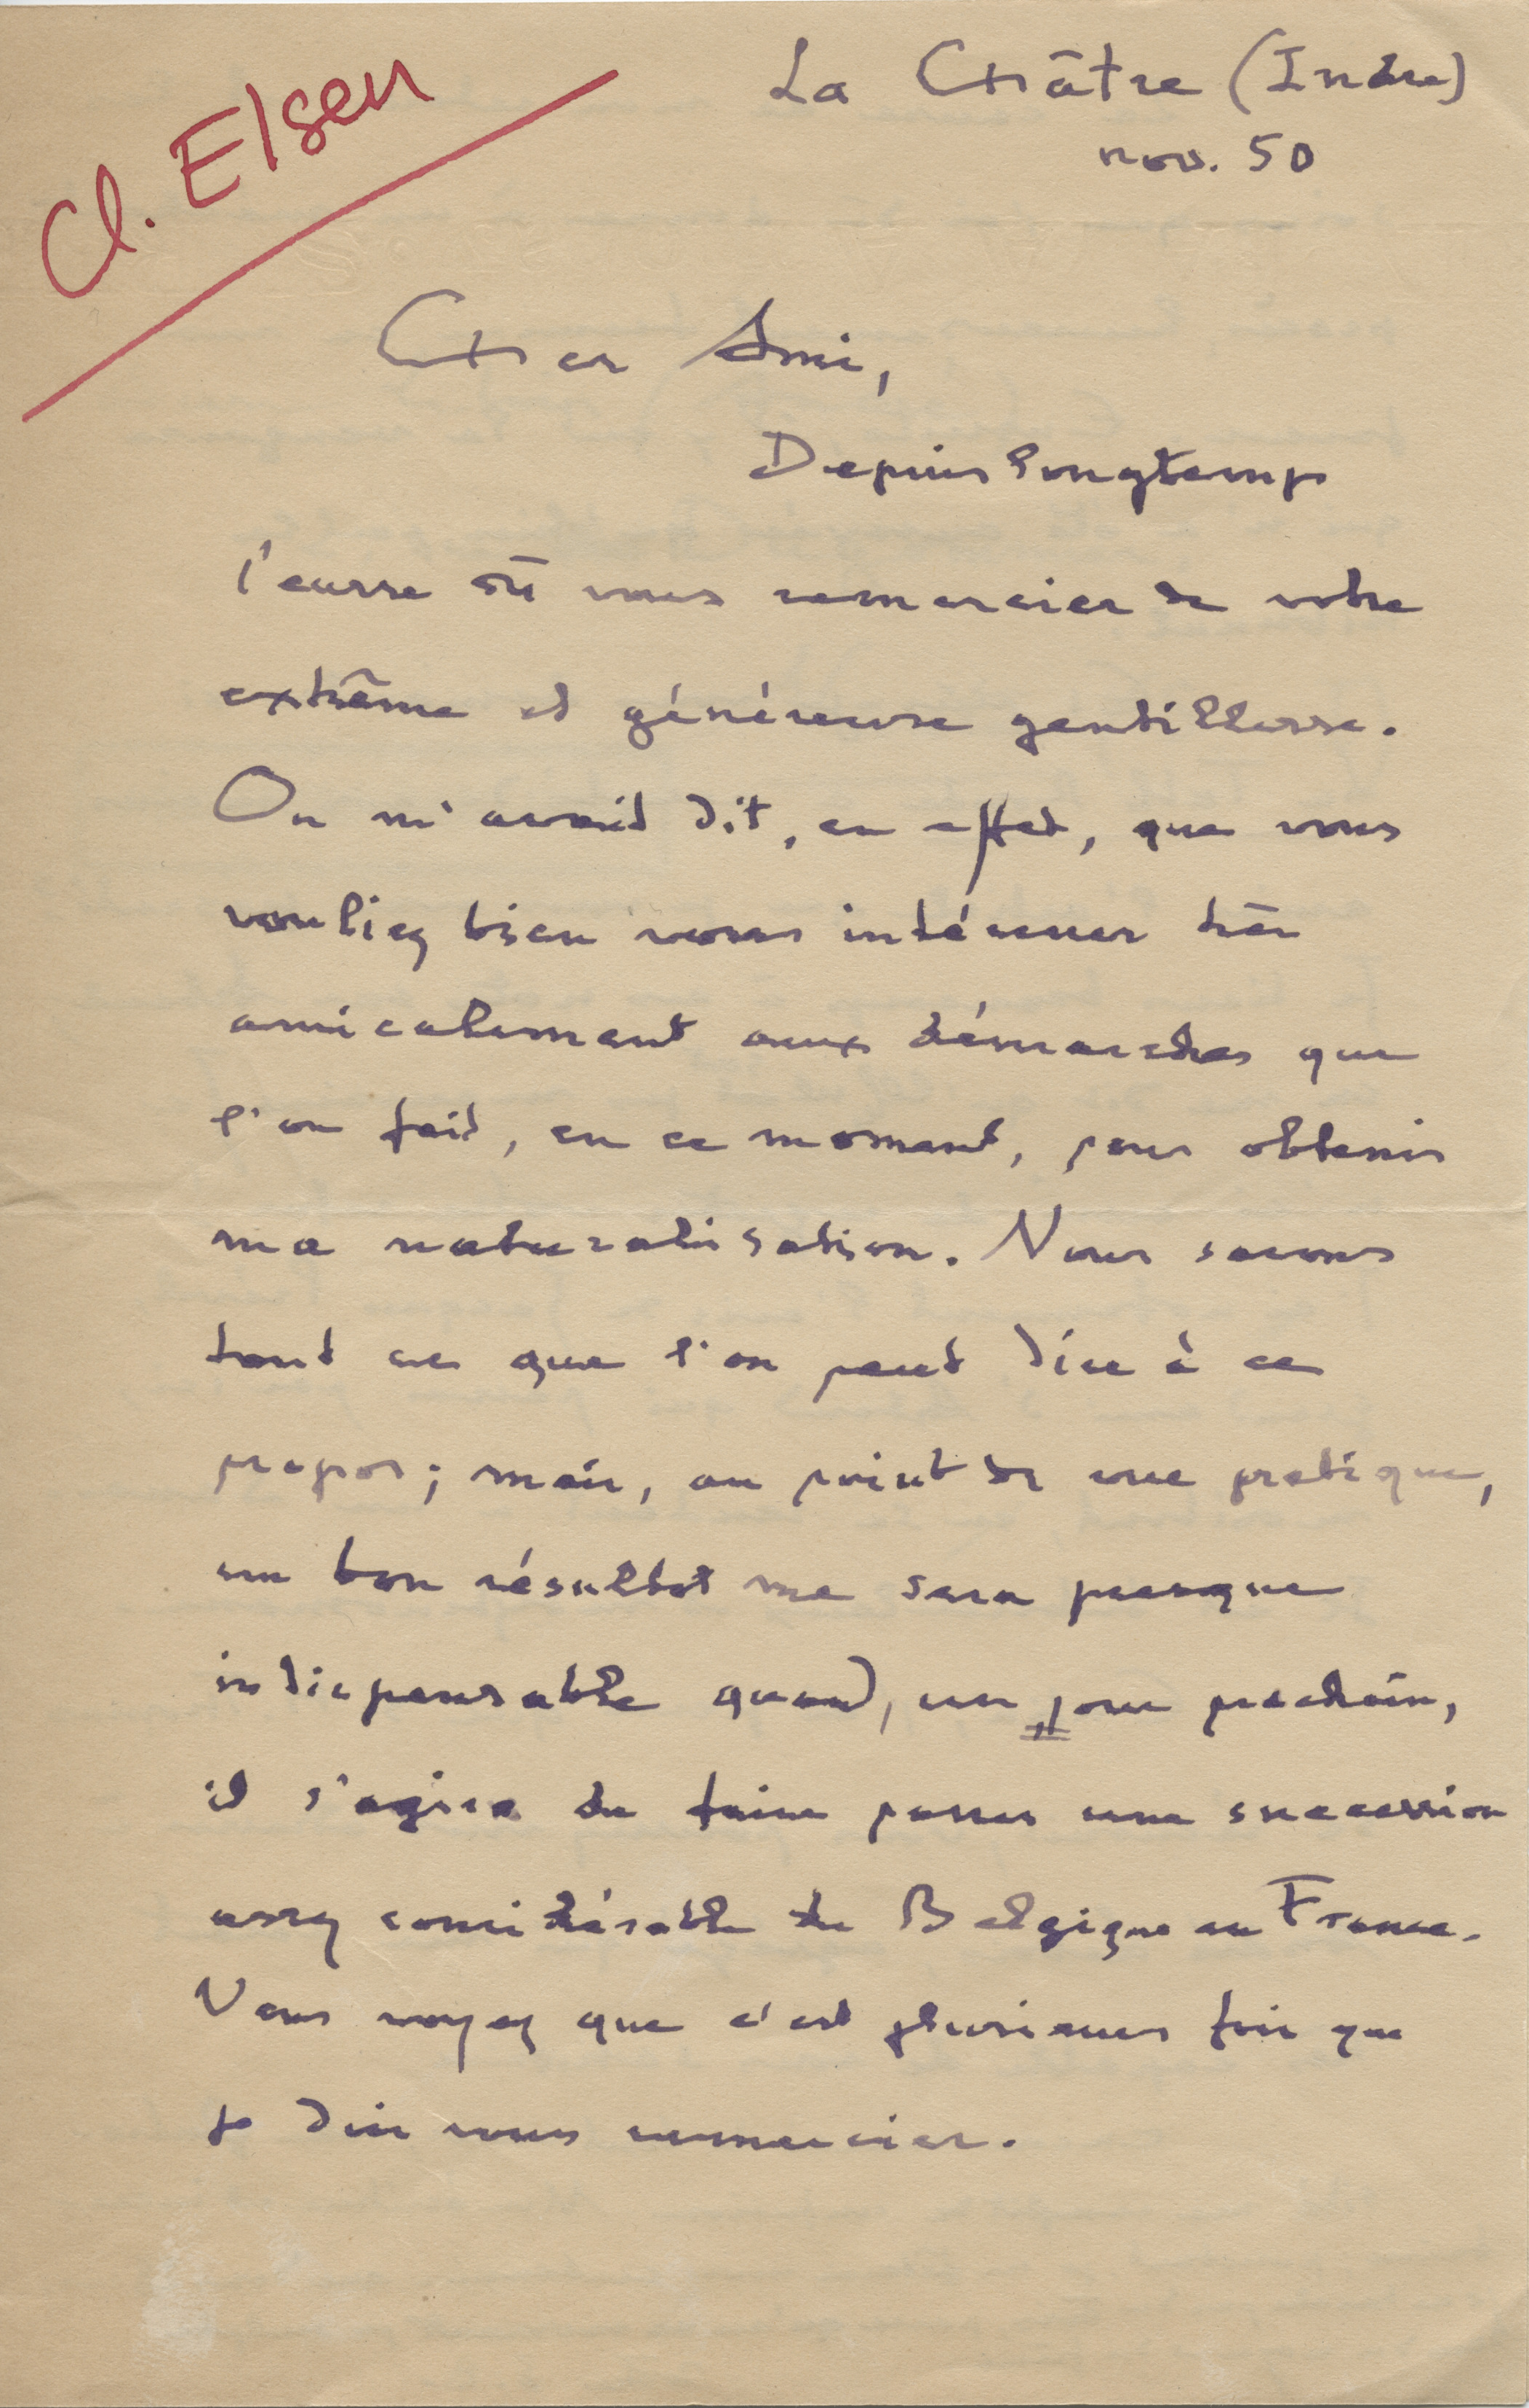 Cl. Elsen
La Châtre (Indre)
nov. 50
Cher Ami,
Depuis longtemps
j'eusse dû vous remercier de votre
extrême et généreuse gentillesse.
On m'avait dit, en effet, que vous
vouliez bien vous intéresser très
amicalement aux démarches que
l'on fait, en ce moment, pour obtenir
ma naturalisation. Nous savons
tout ce que l'on peut dire à ce
propos ; mais, au point de vue pratique,
un bon résultat me sera presque
indispensable quand, un jour prochain,
il s'agira de faire passer une succession
assez considérable de Belgique en France.
Vous voyez que c'est plusieurs fois que
je dois vous remercier.